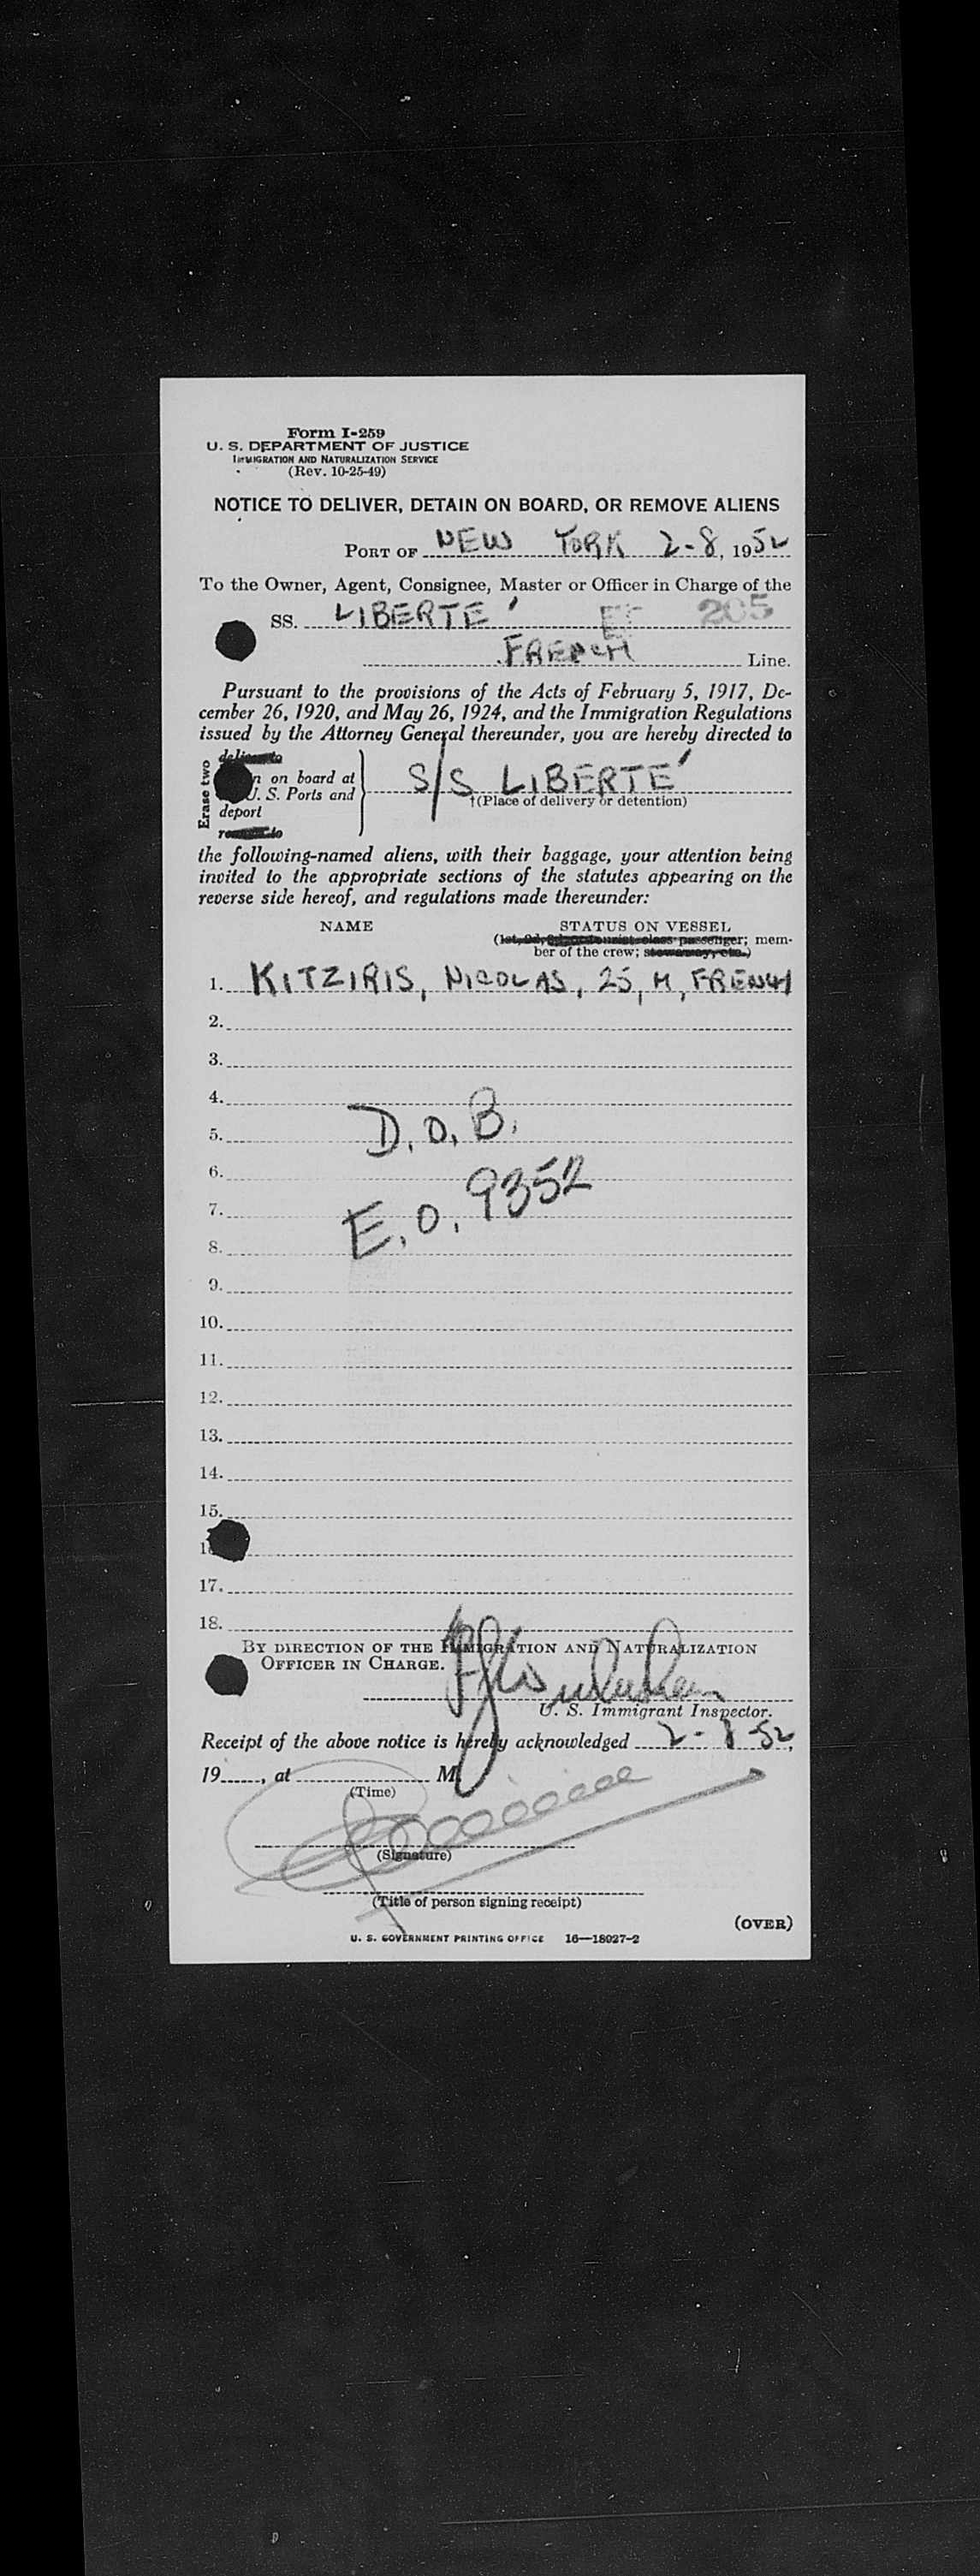 Form I-259
U. S. DEPARTMENT OF JUSTICE
IMMIGRATION AND NATURALIZATION SERVICE
(Rev. 10-25-49)
NOTICE TO DELIVER, DETAIN ON BOARD, OR REMOVE ALIENS
PORT OF NEW YORK 2-8, 1952
To the Owner, Agent, Consignee, Master or Officer in Charge of the
SS. LIBERTE´ 205
FRENCH Line.
Pursuant to the provisions of the Acts of February 5, 1917, De-
cember 26, 1920, and May 26, 1924, and the Immigration Regulations
issued by the Attorney General thereunder, you are hereby directed to
Erase two
deliver to
on board at
U. S. Ports and
deport
S/S LIBERTE´
†(Place of delivery or detention)
the following-named aliens, with their baggage, your attention being
invited to the appropriate sections of the statutes appearing on the
reverse side hereof, and regulations made thereunder:
NAME STATUS ON VESSEL
passenger; mem-
ber of the crew; stowaway, etc.)
1. KITZIRIS, NICOLAS, 25, M, FRENCH
2.
3.
4.
5. D.O.B.
6.
7. E.O. 9352
8.
9.
10.
11.
12.
13.
14.
15.
17.
18.
BY DIRECTION OF THE IMMIGRATION AND NATURALIZATION
OFFICER IN CHARGE.
U. S. Immigrant Inspector.
Receipt of the above notice is hereby acknowledged 2-8-52,
19____, at ____ M
(Time)
(Signature)
(Title of person signing receipt)
(OVER)
U. S. GOVERNMENT PRINTING OFFICE 16—18027-2